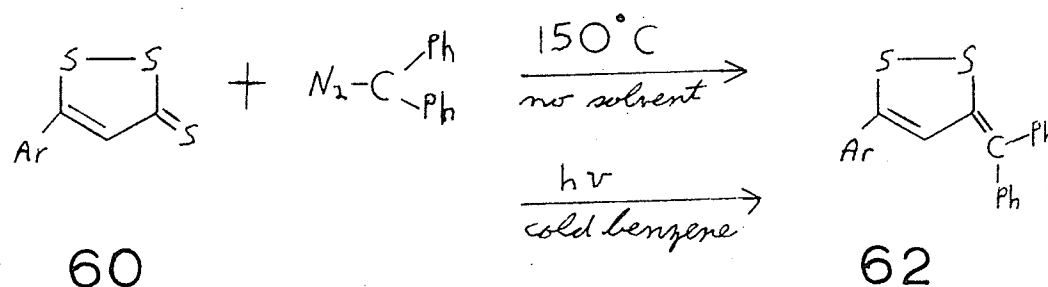 S — S
Ar
S
60
+
N₂–C
Ph
Ph
150°C
no solvent
hν
cold benzene
S — S
Ar
C
Ph
Ph
62